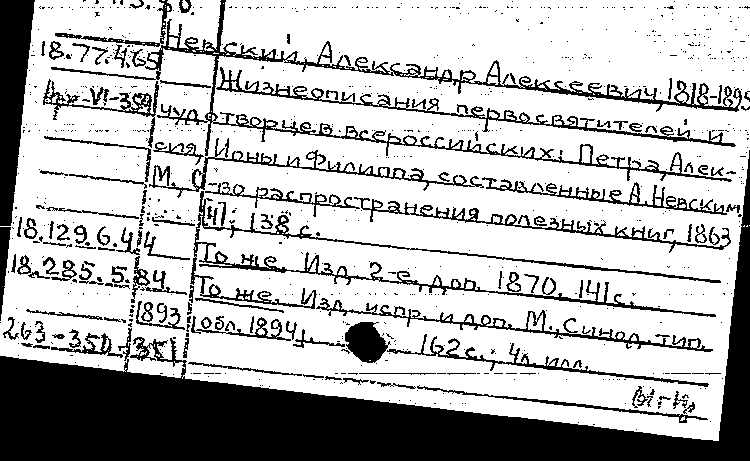 Невский, Александр Алексеевич, 1818-1895
18.77.4.65
Жизнеописания первосвятителей и
Арх-VI-359
чудотворцев всероссийских: Петра, Алек-
сия, Ионы и Филиппа, составленные А. Невским
М., О-во распространения полезных книг, 1863
[4]; 138 с.
18.129.6.44
То же. Изд. 2-е, доп. 1870. 141 с.
18.285.5.84.
То же. Изд. испр. и доп. М., Синод. тип.
1893 [обл. 1894]. 162 с.; 4 л. илл.
263-350-351